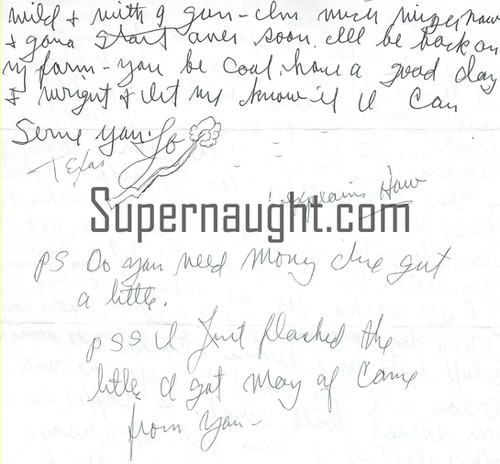 mild & with a gun - Im much nicer now
& gona start over soon. Ill be back on
my farm - you be cool. have a good day
& wright & let me know if U Can
Serve you.
Texas
explains How
Supernaught.com
PS Do you need Mony Ive got
a little.
PSS I Just flashed the
little I got May of Came
from you -